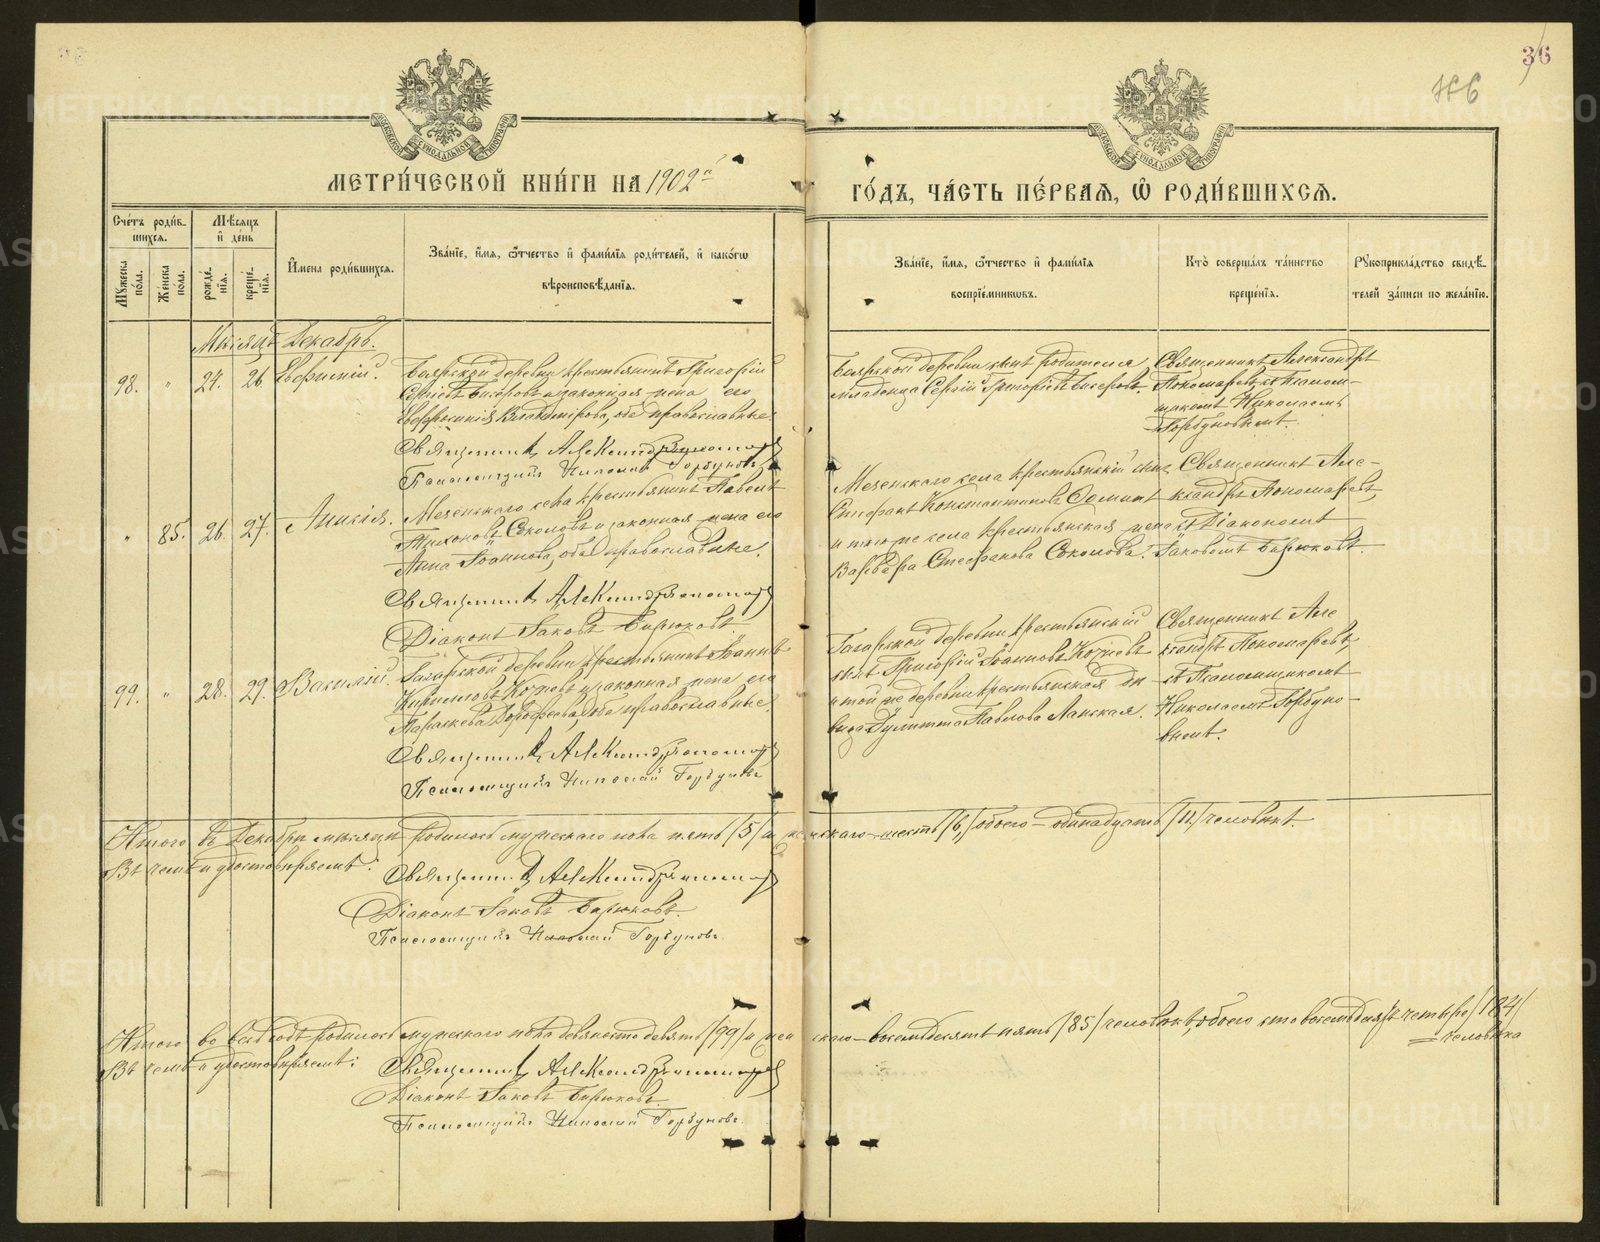 36
МЕТРИ́ЧЕСКОЙ КНИ́ГИ НА 1902й
ГО́ДЪ, ЧА́СТЬ ПЕ́РВАѦ, Ѡ҆ РОДИ́ВШИХСѦ.
Счётъ роди́вшихсѧ.
Мꙋ́жеска по́ла.
Же́нска по́ла.
Мѣ́сѧцъ и҆ де́нь
рожде́нїѧ.
креще́нїѧ.
И҆мена̀ роди́вшихсѧ.
Зва́нїе, и҆́мѧ, ѻ҆́тчество и҆ фами́лїѧ роди́телей, и҆ како́гѡ
вѣроисповѣ́данїѧ.
Зва́нїе, и҆́мѧ, ѻ҆́тчество и҆ фами́лїѧ
воспрїе́мникѡвъ.
Кто̀ соверша́лъ та́инство
креще́нїѧ.
Рꙋкоприкла́дство свидѣ́-
телей за́писи по жела́нїю.
Мѣсяцъ Декабрь.
98. " 24. 26. Евфимій.
Боярской деревни крестьянинъ Григорій
Бисеровъ и законная жена его
Евфросинія Владимірова, оба православные.
Священникъ Александръ Пономаревъ
Псаломщикъ Николай Горбуновъ
Боярской деревни сынъ родителя
младенца Сергій Григорьевъ Бисеровъ.
Священникъ Александръ
Пономаревъ съ псалом-
щикомъ Николаемъ
Горбуновымъ.
" 85. 26. 27. Анисія.
села крестьянинъ Павелъ
Тихоновъ Соколовъ и законная жена его
Анна Іоаннова, оба православные.
Священникъ Александръ Пономаревъ
Діаконъ Іаковъ Бирюковъ
села крестьянскій сынъ
Стефанъ Константиновъ
и того же села крестьянская жена
Варвара Стефанова Соколова.
Священникъ Але-
ксандръ Пономаревъ
съ Діакономъ
Іаковомъ Бирюковымъ.
99. " 28. 29. Василій.
деревни крестьянинъ Іоаннъ
Кирилловъ и законная жена его
Параскева Дорофеева, оба православные.
Священникъ Александръ Пономаревъ
Псаломщикъ Николай Горбуновъ
деревни крестьянскій
сынъ Григорій Іоанновъ
и той же деревни крестьянская дѣ-
вица Іулитта Павлова
Священникъ Але-
ксандръ Пономаревъ
съ Псаломщикомъ
Николаемъ Горбуно-
вымъ.
Итого въ Декабрѣ мѣсяцѣ родилось мужескаго пола пять /5/ и женскаго – шесть /6/, обоего – одинадцать /11/ человѣкъ.
Въ чемъ и удостовѣряемъ:
Священникъ Александръ Пономаревъ
Діаконъ Іаковъ Бирюковъ.
Псаломщикъ Николай Горбуновъ.
Итого во весь годъ родилось мужескаго пола девяносто девять /99/ и женскаго – восемьдесятъ пять /85/ человѣкъ, обоего сто восемьдесятъ четыре /184/
человѣка
Въ чемъ и удостовѣряемъ:
Священникъ Александръ Пономаревъ
Діаконъ Іаковъ Бирюковъ.
Псаломщикъ Николай Горбуновъ.
METRIKI.GASO-URAL.RU